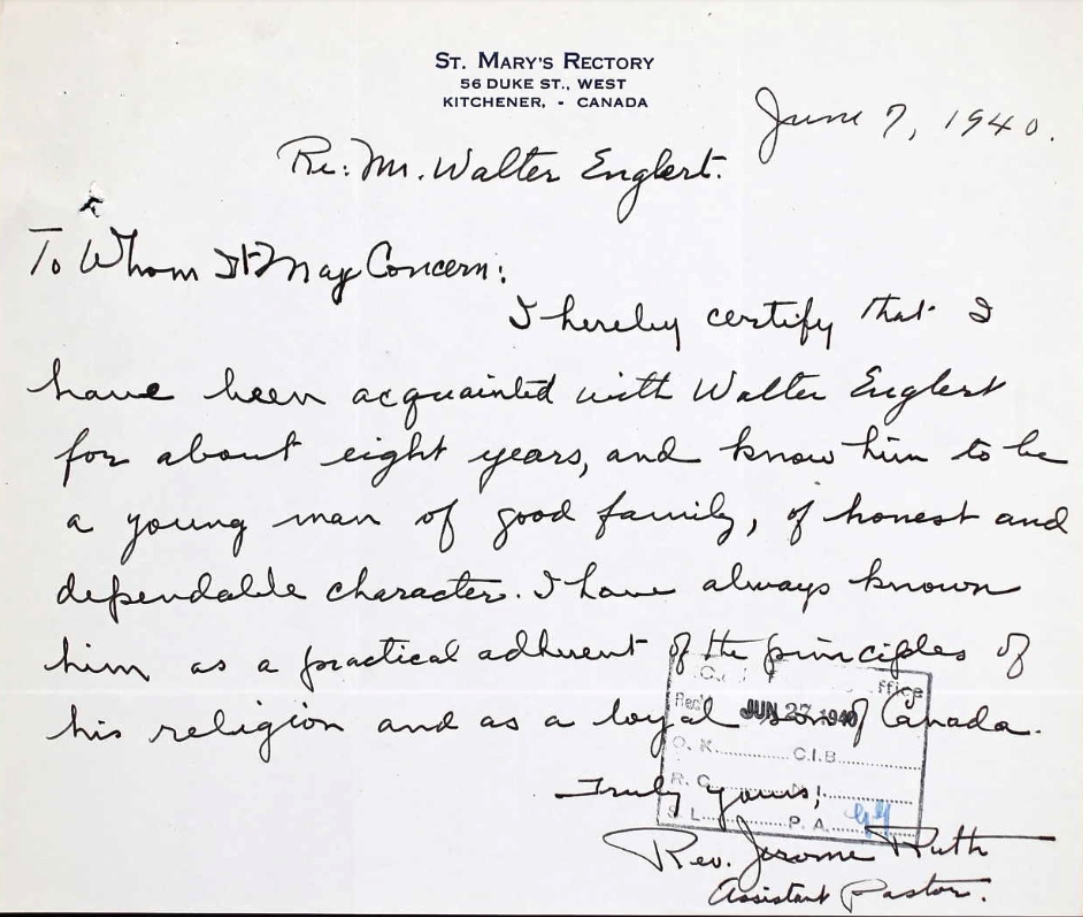 ST. MARY'S RECTORY
56 DUKE ST., WEST
KITCHENER, - CANADA
June 7, 1940.
Re: Mr. Walter Englert.
To Whom It May Concern:
I hereby certify that I
have been acquainted with Walter Englert
for about eight years, and know him to be
a young man of good family, of honest and
dependable character. I have always known
him as a practical adherent of the principles of
his religion and as a loyal son of Canada.
ffice
Rec'd JUN 27 1940
O. K. C.I.B.
R. C.
S. L. P. A.
Truly yours,
Rev. Jerome Ruth
Assistant Pastor.